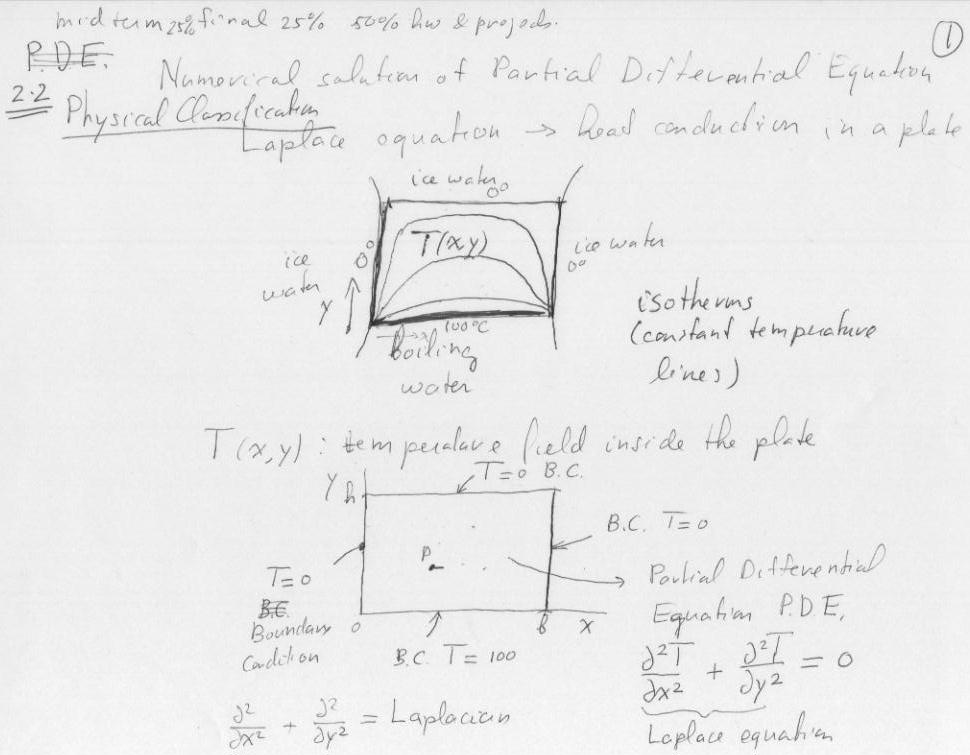 midterm 25% final 25% 50% hw & projects.
1
P.D.E.
Numerical solution of Partial Differential Equation
2.2 Physical Classification
Laplace equation → Head conduction in a plate
ice water 0°
T(x y)
ice water 0°
ice water 0°
y
x 100°C
boiling water
isotherms
(constant temperature
lines)
T(x,y) : temperature field inside the plate
y h
T=0 B.C.
B.C. T=0
P
T=0
B.C.
Boundary
Condition
0
b x
B.C. T= 100
Partial Differential
Equation P.D.E.
∂²T/∂x² + ∂²T/∂y² = 0
Laplace equation
∂²/∂x² + ∂²/∂y² = Laplacian